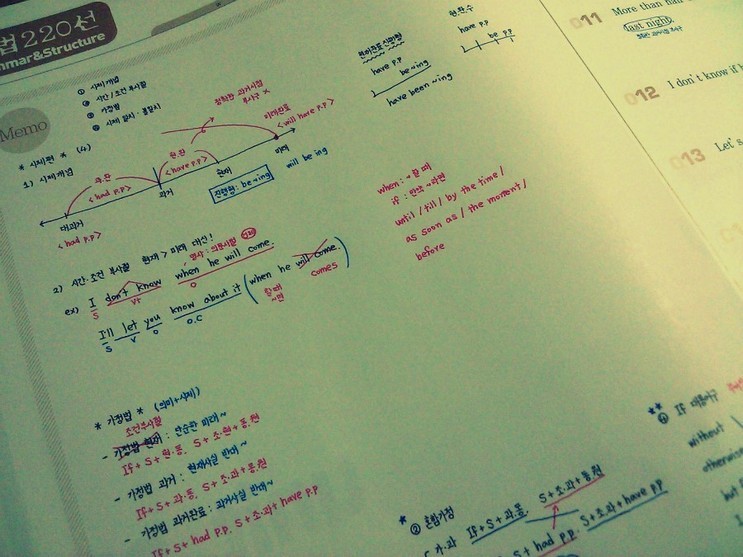 법220선
mmar&Structure
Memo
① 시제개념
② 시간/조건 부사절
③ 가정법
④ 시제 일치·불일치
* 시제편 * (4)
1) 시제개념
명확한 과거시점
부사구 X
미래완료
<will have p.p>
현.완
<have p.p>
과.완
<had p.p>
대과거
<had p.p>
과거
현재
미래
진행형: be ~ing
will be ing
완료수동
have p.p
be pp
현재완료진행형
have p.p
be ~ing
have been ~ing
when: ~할 때
if: 만약 ~라면
until / till / by the time /
as soon as / the moment /
before
2) 시간·조건 부사절 현재 > 미래 대신!
명사·의문사절
ex) I don't know when he will come.
S V O
I'll let you know about it (when he will come.)
S V O O.C
할 때
~면
comes
* 가정법 * (의미+시제)
조건부사절
- 가정법 현재: 단순한 미래~
If + S + 현.동, S + 조.현 + 동.원
- 가정법 과거: 현재사실 반대~
If + S + 과.동, S + 조.과 + 동.원
- 가정법 과거완료: 과거사실 반대~
If + S + had p.p. S + 조.과 + have p.p
② 혼합가정
If + S + 과.동, S + 조.과 + 동.원
S + had pp. S + 조.과 + have pp
** ④ If 대용어구
without
otherwise
but
011 More than half
last night
012 I don't know if h
013 Let's